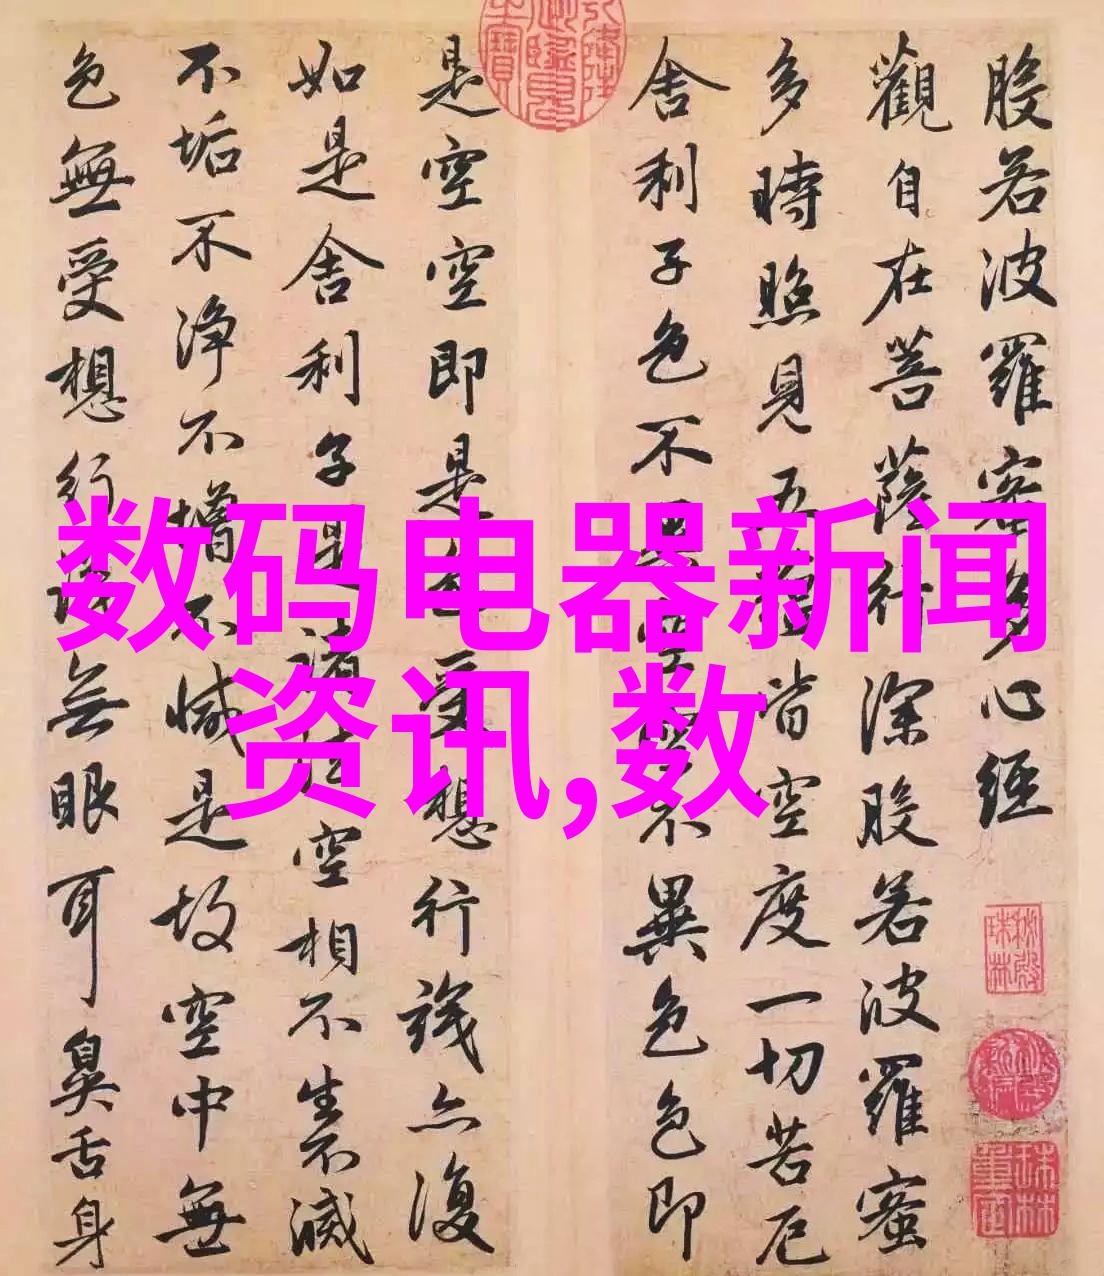 般若波羅蜜多心經
觀自在菩薩行深般若波羅蜜
多時照見五蘊皆空度一切苦厄
舍利子色不異空空不異色色即
是空空即是色受想行識亦復
如是舍利子是諸法空相不生不滅
不垢不淨不增不減是故空中無
色無受想行識無眼耳鼻舌身
数码电器新闻
资讯,数
秘殿珠林